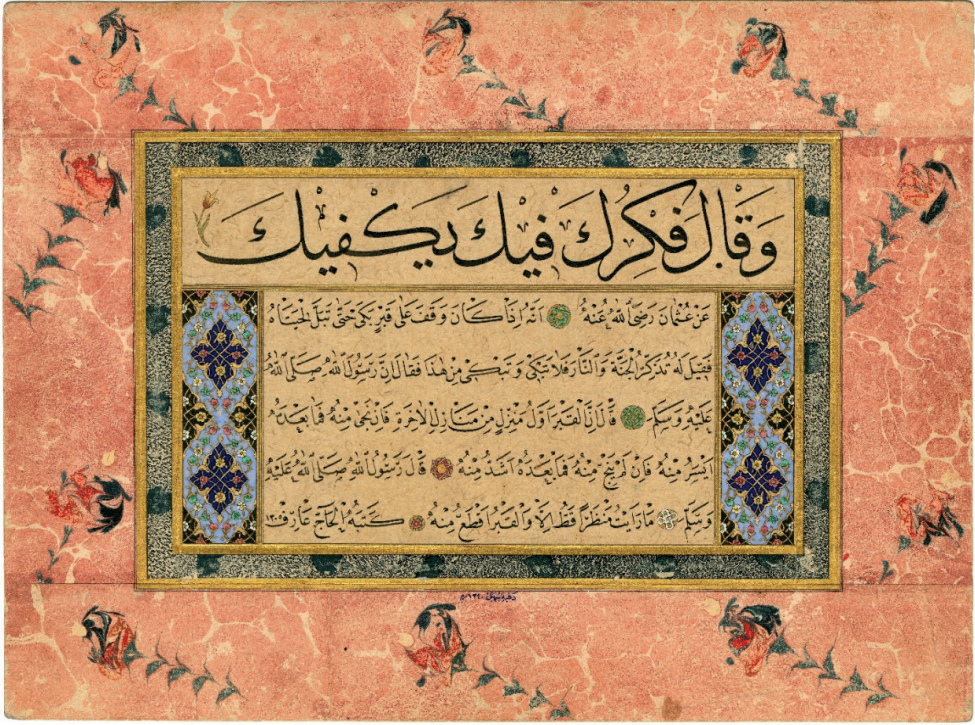 وَقَالَ فَكِرُكَ فَيِكَ يَكْفِيكَ
عَنْ عُثْمَانَ رَضِيَ اللهُ عَنْهُ اَنَّهُ اِذَا كَانَ وَقَفَ عَلَى قَبْرٍ بَكَى حَتَّى تَبُلَّ لِحْيَتَاهُ
فَقِيلَ لَهُ تُذْكَرُ الْجَنَّةُ وَالنَّارُ فَلَا تَبْكِى وَتَبْكِى مِنْ هٰذَا فَقَالَ اِنَّ رَسُولَ اللهِ صَلَّى اللهُ
عَلَيْهِ وَسَلَّمَ قَالَ اِنَّ الْقَبْرَ اَوَّلُ مَنْزِلٍ مِنْ مَنَازِلِ الْاٰخِرَةِ فَاِنْ نَجَى مِنْهُ فَمَا بَعْدَهُ
اَيْسَرُ مِنْهُ فَاِنْ لَمْ يَنْجُ مِنْهُ فَمَا بَعْدَهُ اَشَدُّ مِنْهُ قَالَ رَسُولُ اللهِ صَلَّى اللهُ عَلَيْهِ
وَسَلَّمَ مَا رَاَيْتُ مَنْظَرًا قَطُّ اِلَّا وَالْقَبْرُ اَفْظَعُ مِنْهُ كَتَبَهُ الْحَاجّ عَارِف ١٣٠٠